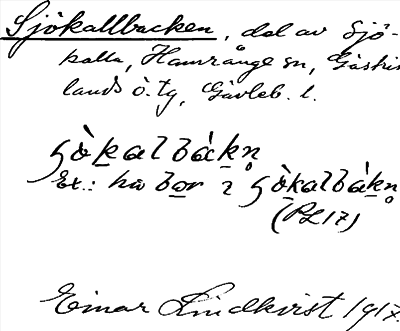 Sjökallbacken, del av Sjö-
kalla, Hamrånge sn, Gästrik
lands ö. tg, Gävleb. l.
ʂökalbàkn̥
Ex.: ha bor i ʂökalbàkn̥
(PL 17)
Einar Lindkvist 1917.